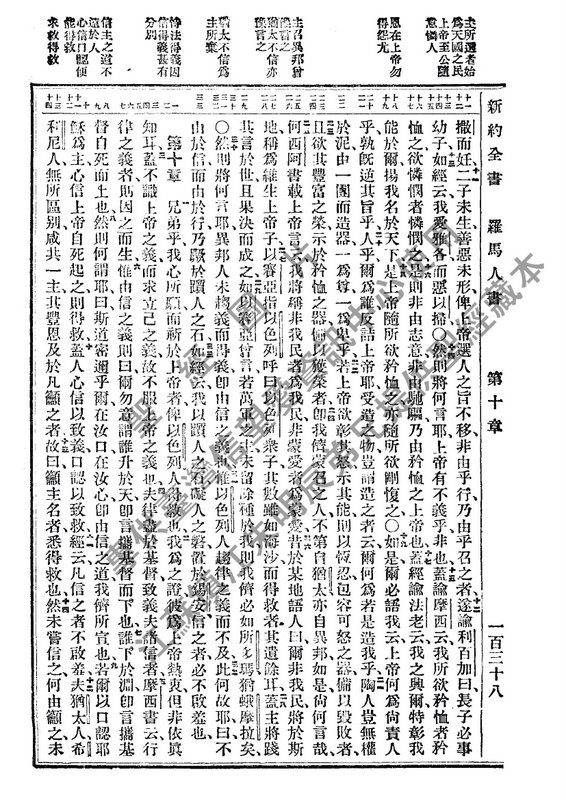 新約全書　羅馬人書　第十章　一百三十八
主所選者始
爲天國之民
上帝至公隨
意憐人
恩在上帝勿
得怨尤
主召異邦曾
預言之
猶太不信亦
預言之
猶太不信爲
主所棄
得義因
信得義甚有
分別
信主之道不
遠於人
心信口認便
能得救
求救得救
撒而妊二子未生善惡未形俾上帝選人之旨不移非由乎行乃由乎召之者遂諭利百加曰長子必事
幼子如經云我愛雅各而惡以掃〇然則何言耶上帝有不義乎非也蓋諭摩西云我所欲矜恤者矜
恤之欲憐憫者憐憫之是則非由志意非由馳驅乃由矜恤之上帝也蓋經諭法老云我之興爾特彰我
能於爾揚我名於天下是故隨所欲矜恤之亦隨所欲剛愎之〇如是爾必語我云上帝何爲尚責人
乎孰逆其旨乎人乎爾爲誰反詰上帝耶受造之物豈謂造之者云爾何爲若是造我乎陶人豈無權
於泥由一團而造器一爲尊一爲卑乎若上帝欲彰其怒示其能則以恆忍包容可怒之器備以毀敗者
且欲其豐富之榮示於矜恤之器備以獲榮者卽我儕蒙召之人不第自猶太亦自異邦如是尚何言哉
何西阿書載上帝言云我將稱非我民者爲我民非蒙愛者爲蒙愛昔於某地語人曰爾非我民將於斯
地稱爲維生上帝子以賽亞指以色列呼曰以色列衆子其數雖如海沙而得救者其遺餘耳蓋主將踐
其言於世且果決而成之如以賽亞言若萬軍之主未留餘種於我則我儕必如所多瑪猶蛾摩拉矣
〇然則將何言耶異邦人未趨義而得義卽由信之義也惟以色列人趨律之義而不及此何故耶曰不
由於信而由於行乃躓於躓人之石如經云我以躓人之石礙人之磐置於錫安信之者必不啟羞也
第十章　兄弟乎我心所願而祈於上帝者俾以色列人得救也我爲之證彼爲上帝熱衷但非依眞
知耳蓋不識上帝之義而求立己之義故不服上帝之義也夫律盡於基督致義夫諸信者摩西書云行
律之義者則因之而生惟由信之義則曰爾勿意謂誰升於天卽言攜基督而下也誰下於淵卽言攜基
督自死而上也然則何謂耶曰斯道密邇乎爾在汝口在汝心卽由信之道我儕所宣也若爾以口認耶
穌爲主心信上帝自死起之則得救蓋人心信以致義口認以致救經云凡信之者不啟羞夫猶太人希
利尼人無所區別咸共一主其豐恩及於凡籲之者故曰籲主名者悉得救也然未嘗信之何由籲之未